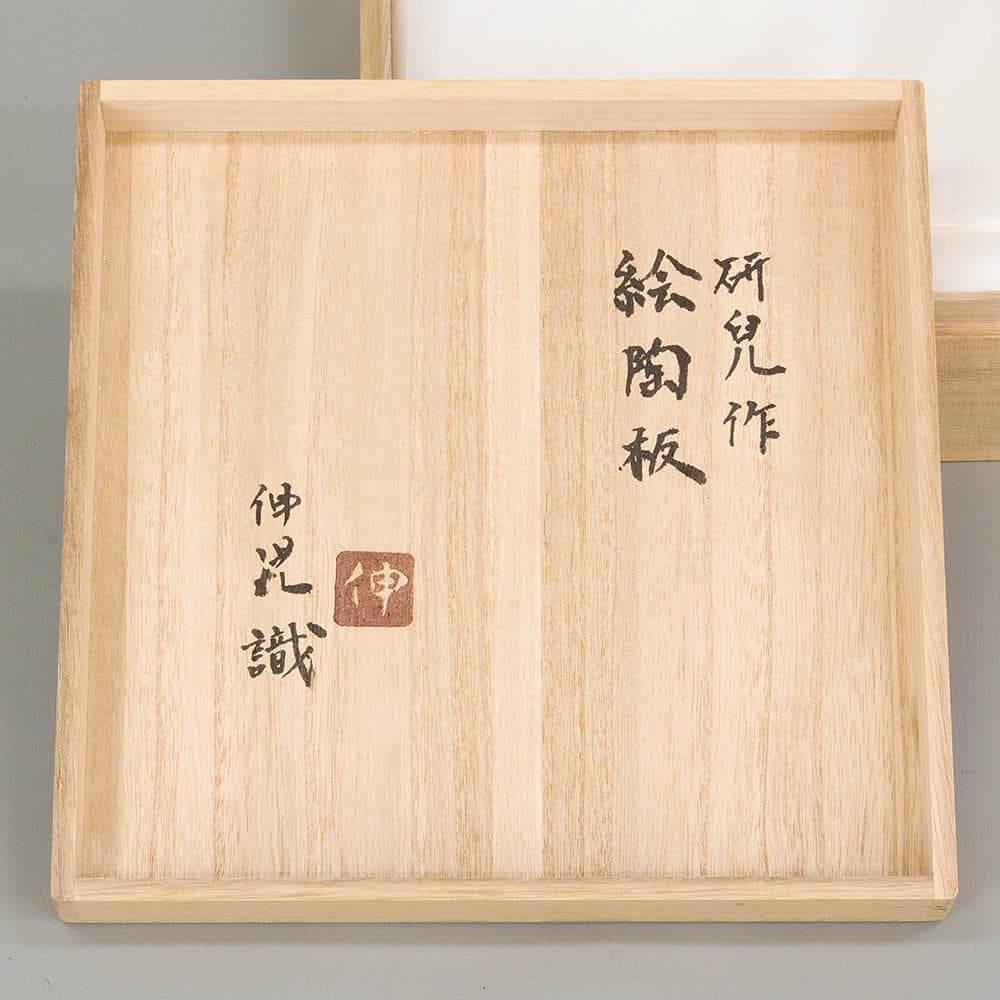 研兒作
絵陶板
伸児識
伸